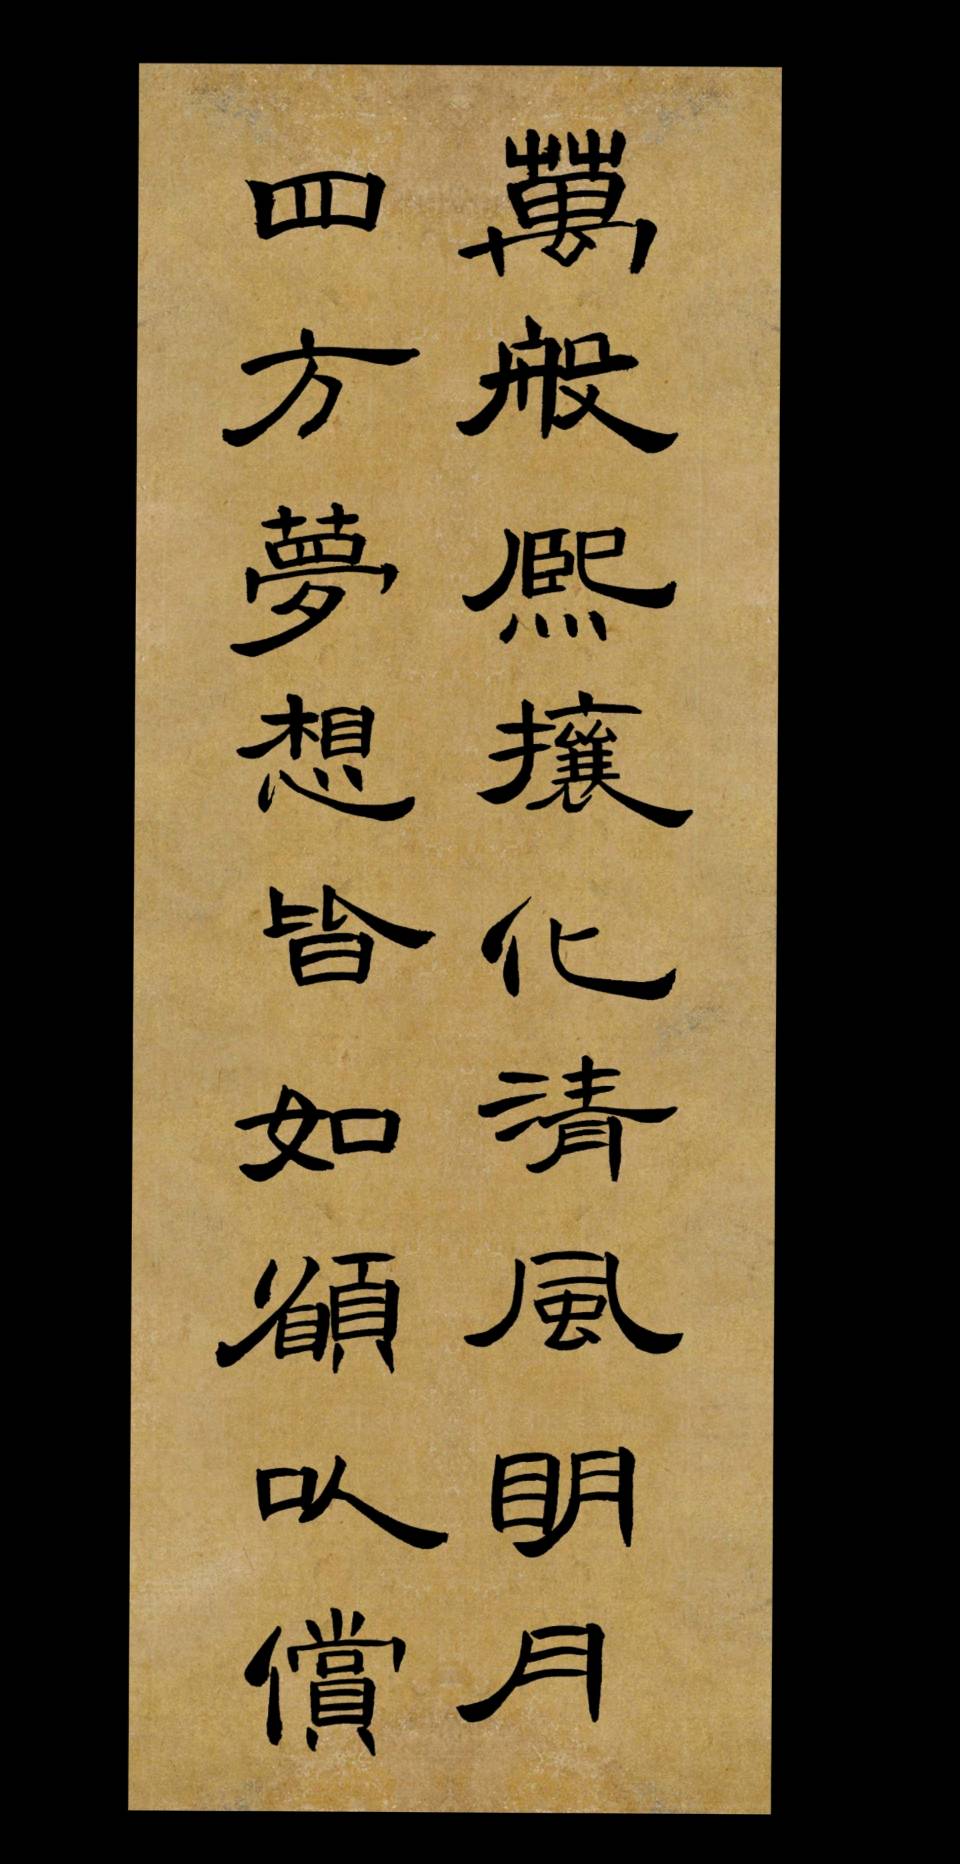 萬般熙攘化清風明月
四方夢想皆如願以償